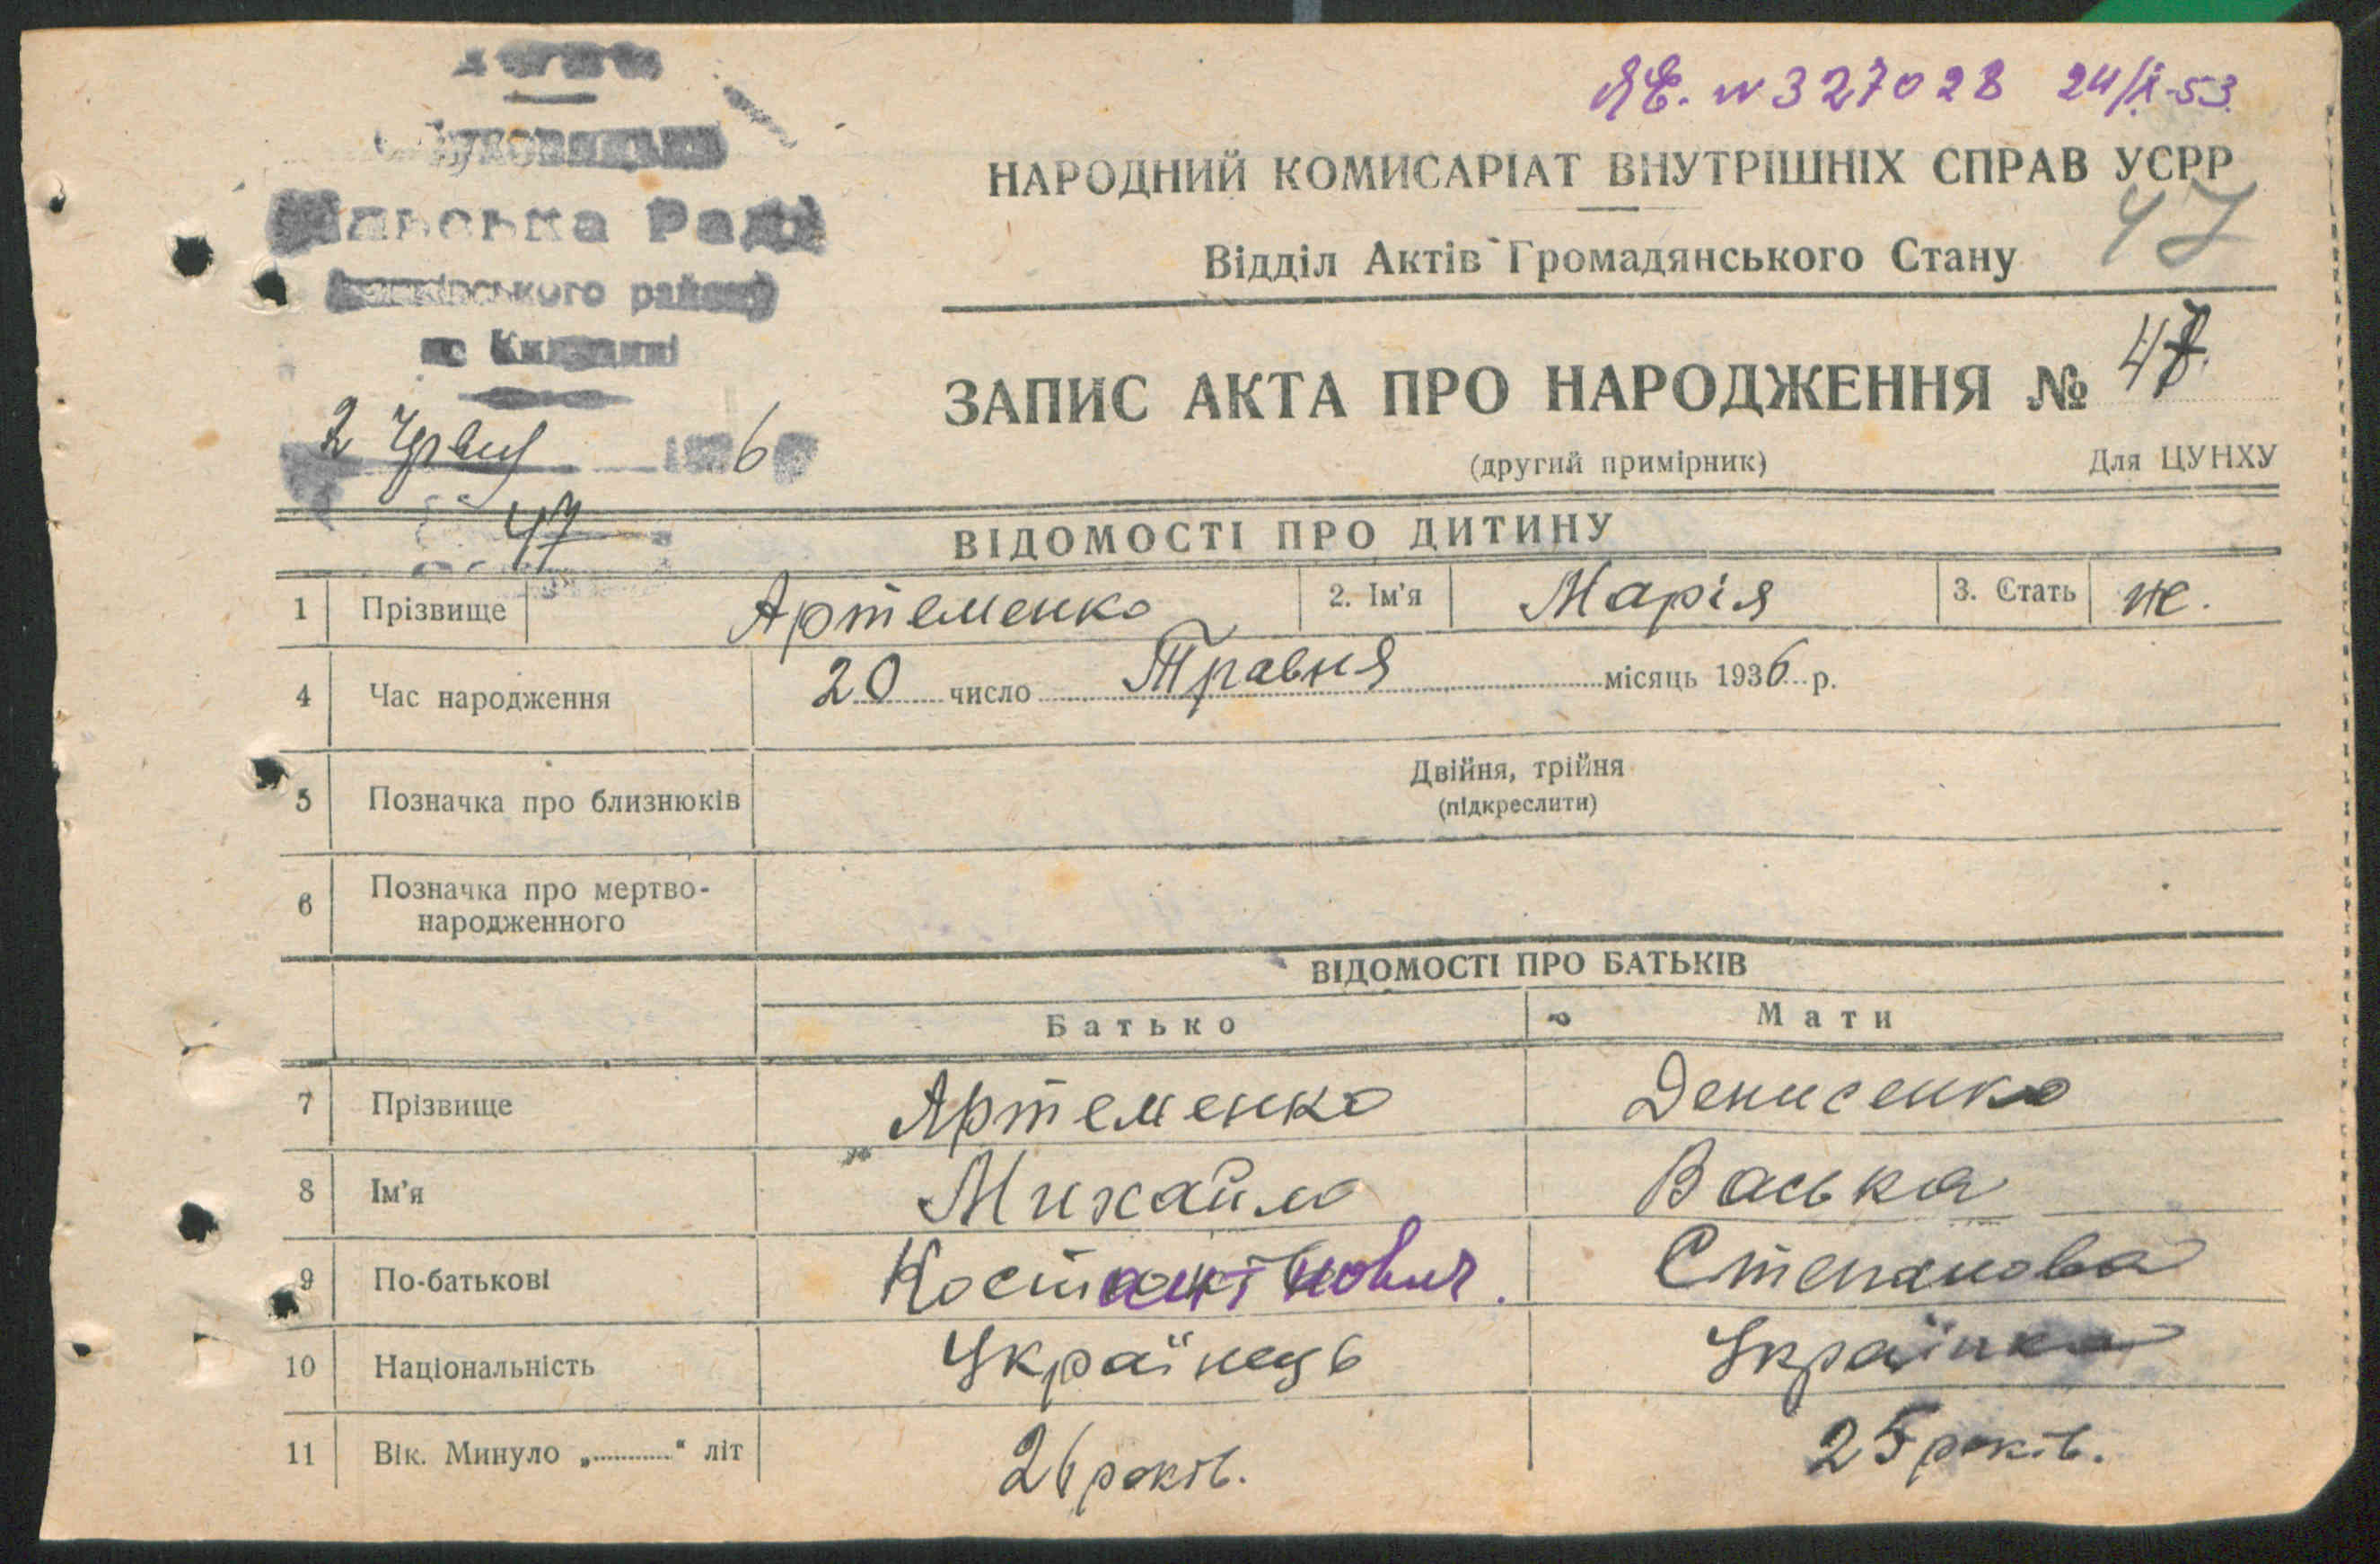 ЯЕ. № 327028 24/X-53.
НАРОДНИЙ КОМИСАРІАТ ВНУТРІШНІХ СПРАВ УСРР
47
Відділ Актів Громадянського Стану
Рад
ського
2 Червн 6
47
ЗАПИС АКТА ПРО НАРОДЖЕННЯ № 47.
(другий примірник) Для ЦУНХУ
ВІДОМОСТІ ПРО ДИТИНУ
1 Прізвище Артеменко 2. Ім'я Марія 3. Стать же.
4 Час народження 20 число Травня місяць 1936 р.
5 Позначка про близнюків Двійня, трійня
(підкреслити)
6 Позначка про мертво-
народженного
ВІДОМОСТІ ПРО БАТЬКІВ
Батько Мати
7 Прізвище Артеменко Денисенко
8 Ім'я Михайло Васька
9 По-батькові Костянтинович. Степанова
10 Національність Українець Українка
11 Вік. Минуло „..........“ літ 26 років. 25 років.